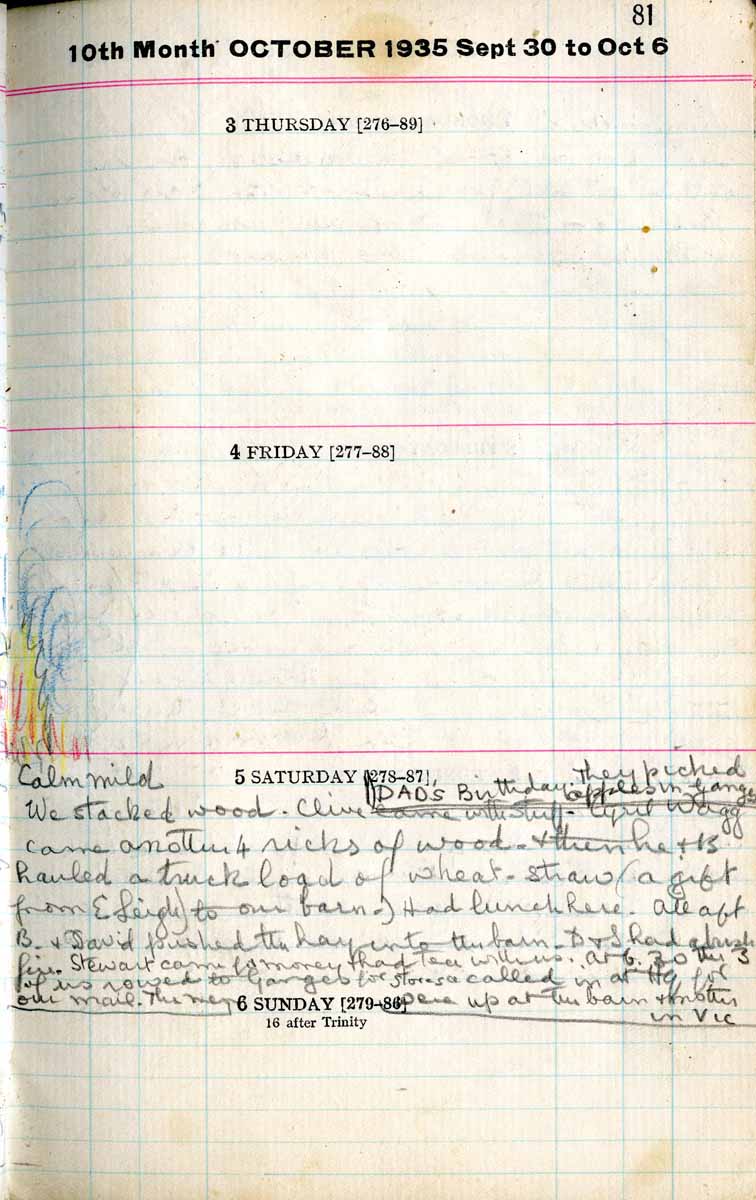 81
10th Month OCTOBER 1935 Sept 30 to Oct 6
3 THURSDAY [276–89]
4 FRIDAY [277–88]
Calm mild 5 SATURDAY [278–87], DAD'S Birthday They picked
apples in Ganges
We stacked wood. Clive came with Cyril Wagg
came another 4 ricks of wood - & then he & B
hauled a truck load of wheat-straw (a gift
from E Leigh) to our barn -) Had lunch here. All aft
B. & David pushed the hay into the barn. D & S had a bush
fire. Stewart came for money & had tea with us. At 6.30 the 3
of us rowed to Ganges for stores & called in at HQ for
our mail. The men up at the barn & another
in Vic
6 SUNDAY [279–86]
16 after Trinity